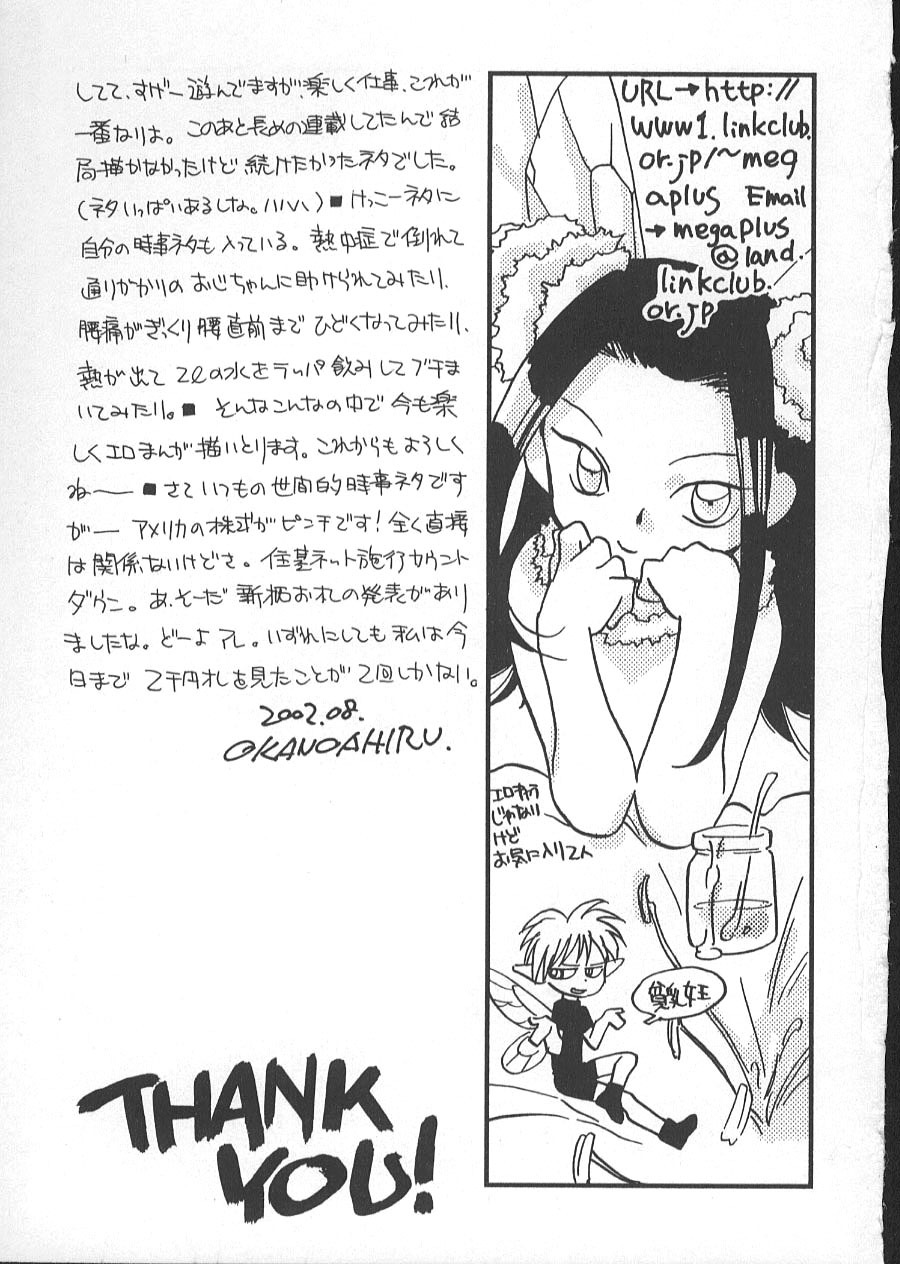 してて、すげー遊んでますが、楽しく仕事、これが
一番なりよ。このあと長めの連載してたんで結
局描かなかったけど続けたかったネタでした。
(ネタいっぱいあるしな。ハハハ、)■けっこーネタに
自分の時事ネタも入っている。熱中症で倒れて
通りかかりのおじちゃんに助けられてみたり、
腰痛がぎっくり腰直前までひどくなってみたり、
熱が出て2ℓの水をラッパ飲みしてブチま
いてみたり。■そんなこんなの中で今も楽
しくエロまんが描いとります。これからもよろしく
ね――■さていつもの世間的時事ネタです
が―アメリカの株式がピンチです!全く直接
は関係ないけどさ。住基ネット施行カウント
ダウン。あ、そーだ新柄お札の発表があり
ましたな。どーよアレ。いずれにしても私は今
日まで2千円札を見たことが2回しかない。
2002.08.
OKANOAHIRU.
URL→http://
www1.linkclub.
or.jp/~meg
aplus Email
→megaplus
@land.
linkclub.
or.jp
エロキャラ
じゃない
けど
お気に入り2人
貧乳女王
THANK
YOU!